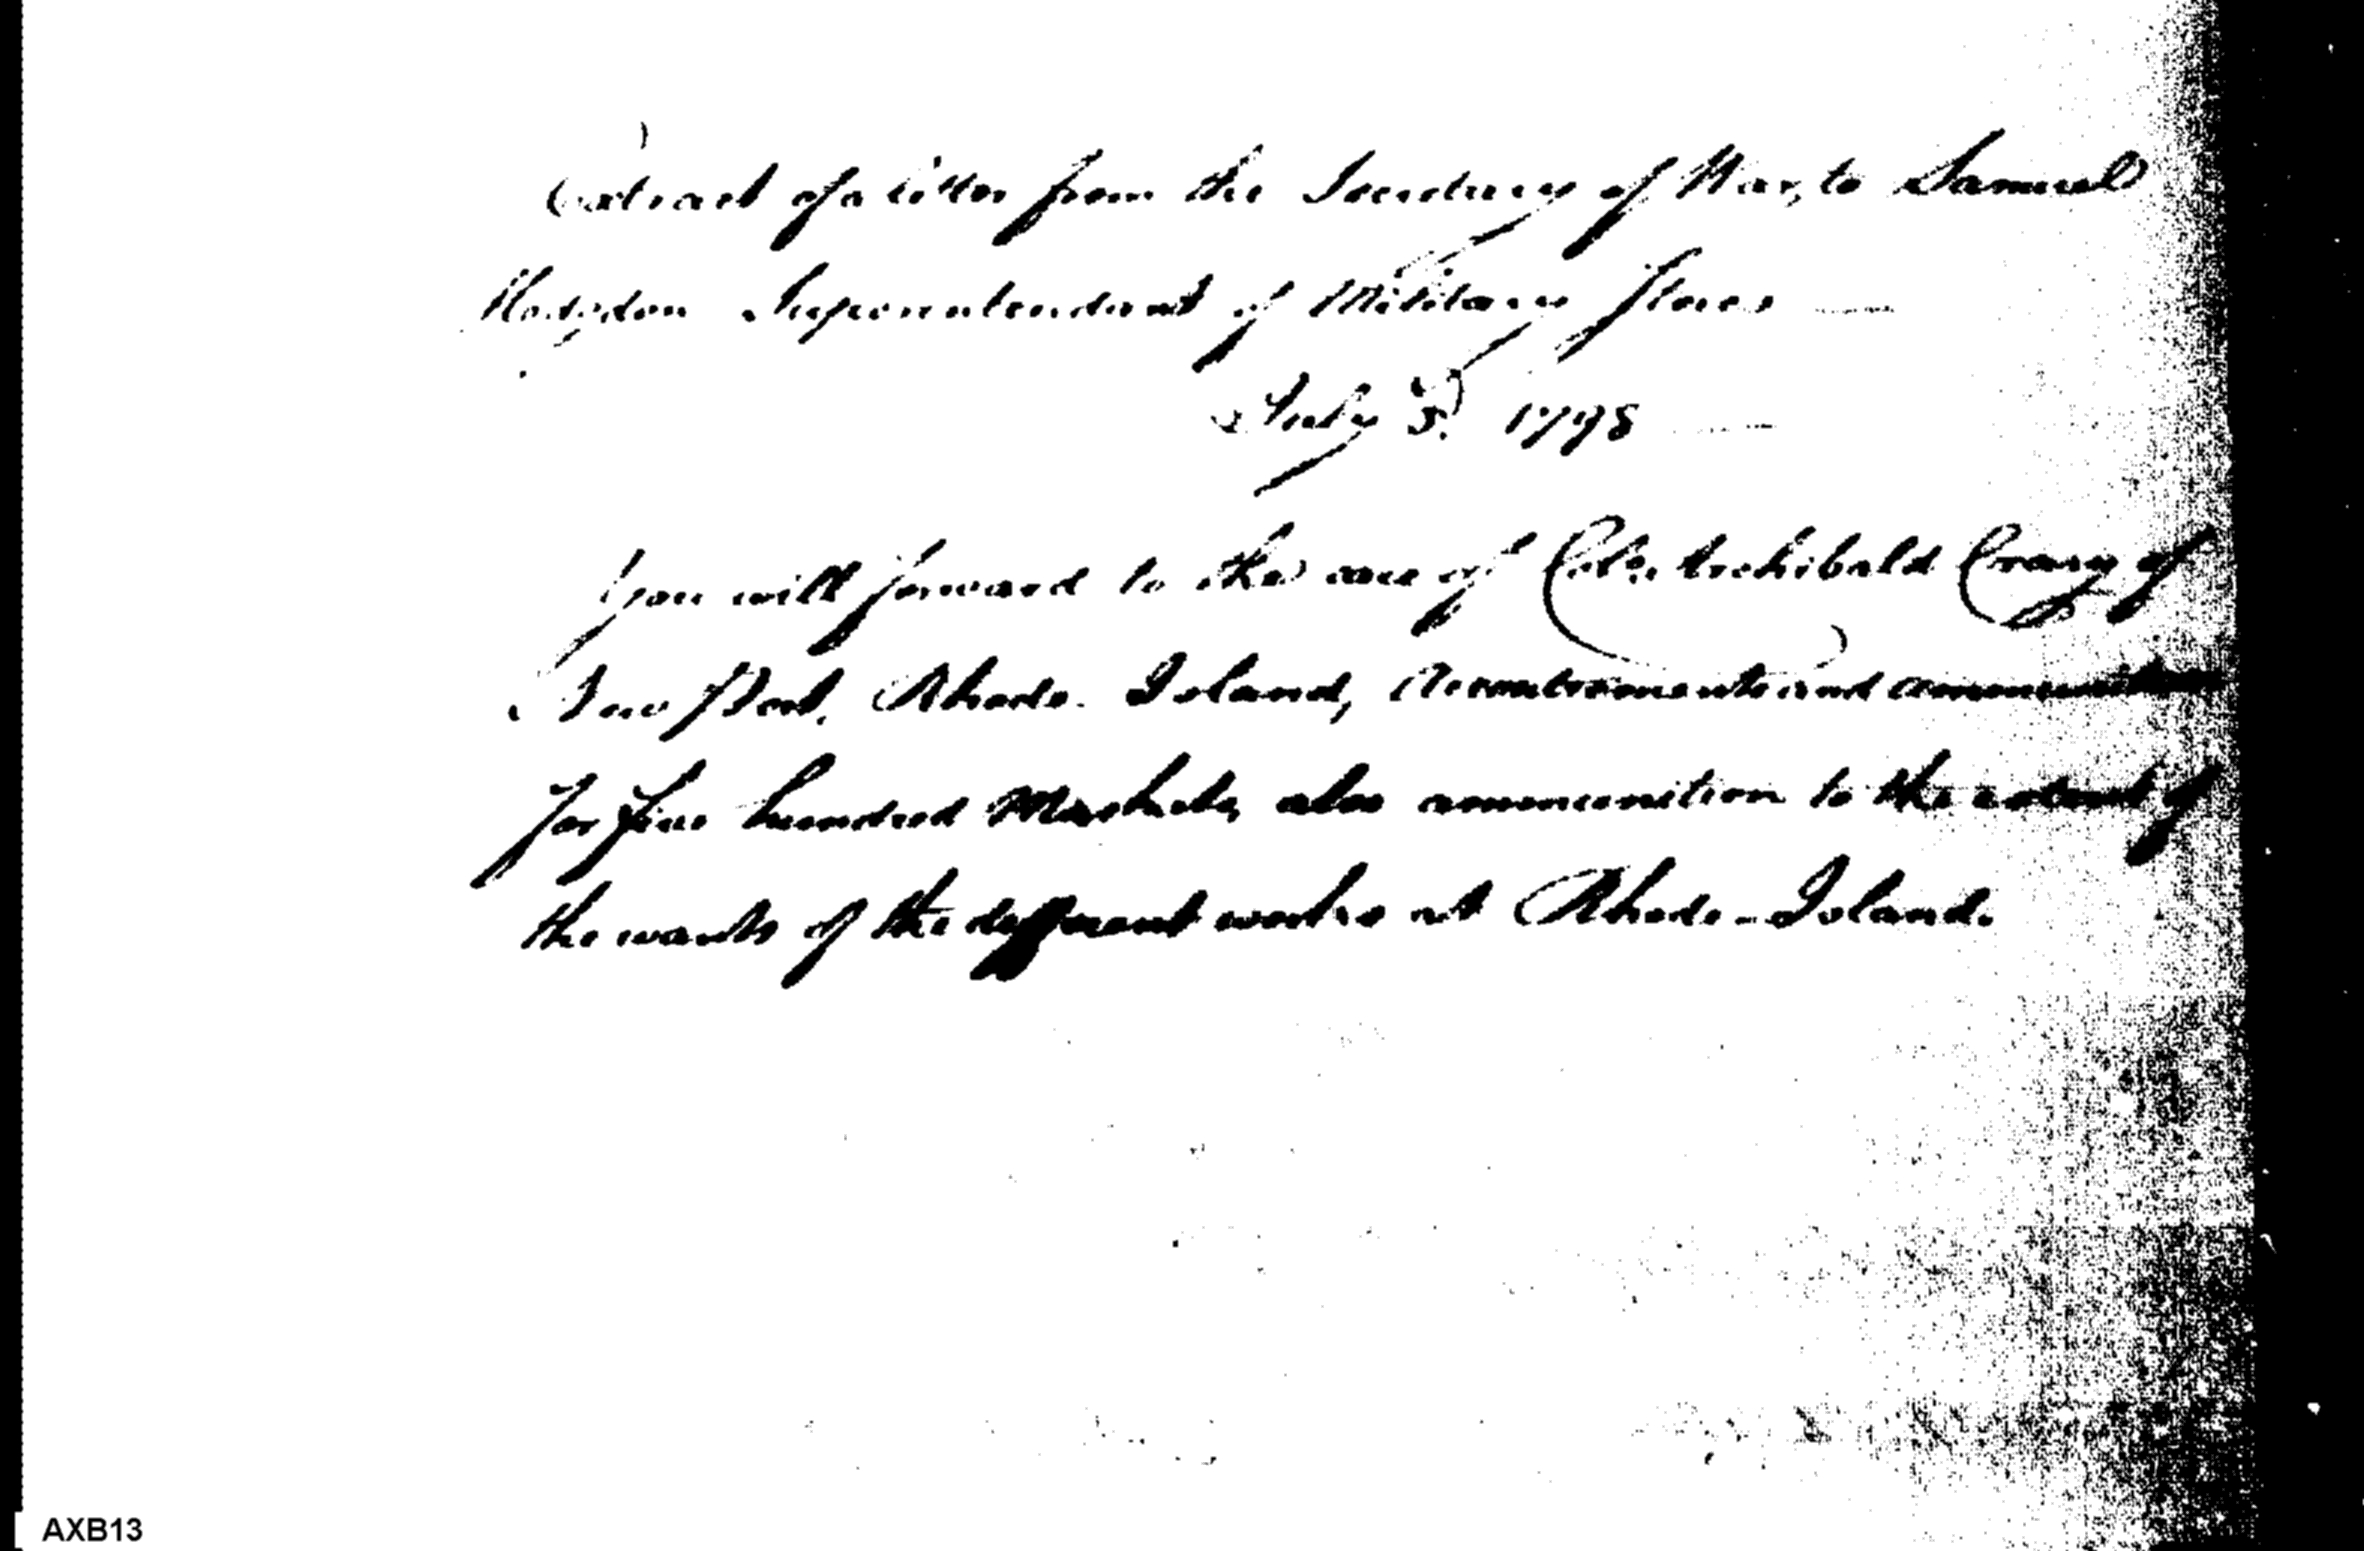 Extract of a letter from the Secretary of War, to Samuel
Hodgdon Superintendant of Military Stores —
July 5. 1798 —
You will forward to the care of Colo. Archibald Crary of
New Port, Rhode-Island, Accoutrements and ammunition
for five hundred Muskets, also ammunition to the extent of
the wants of the different works at Rhode-Island.
AXB13